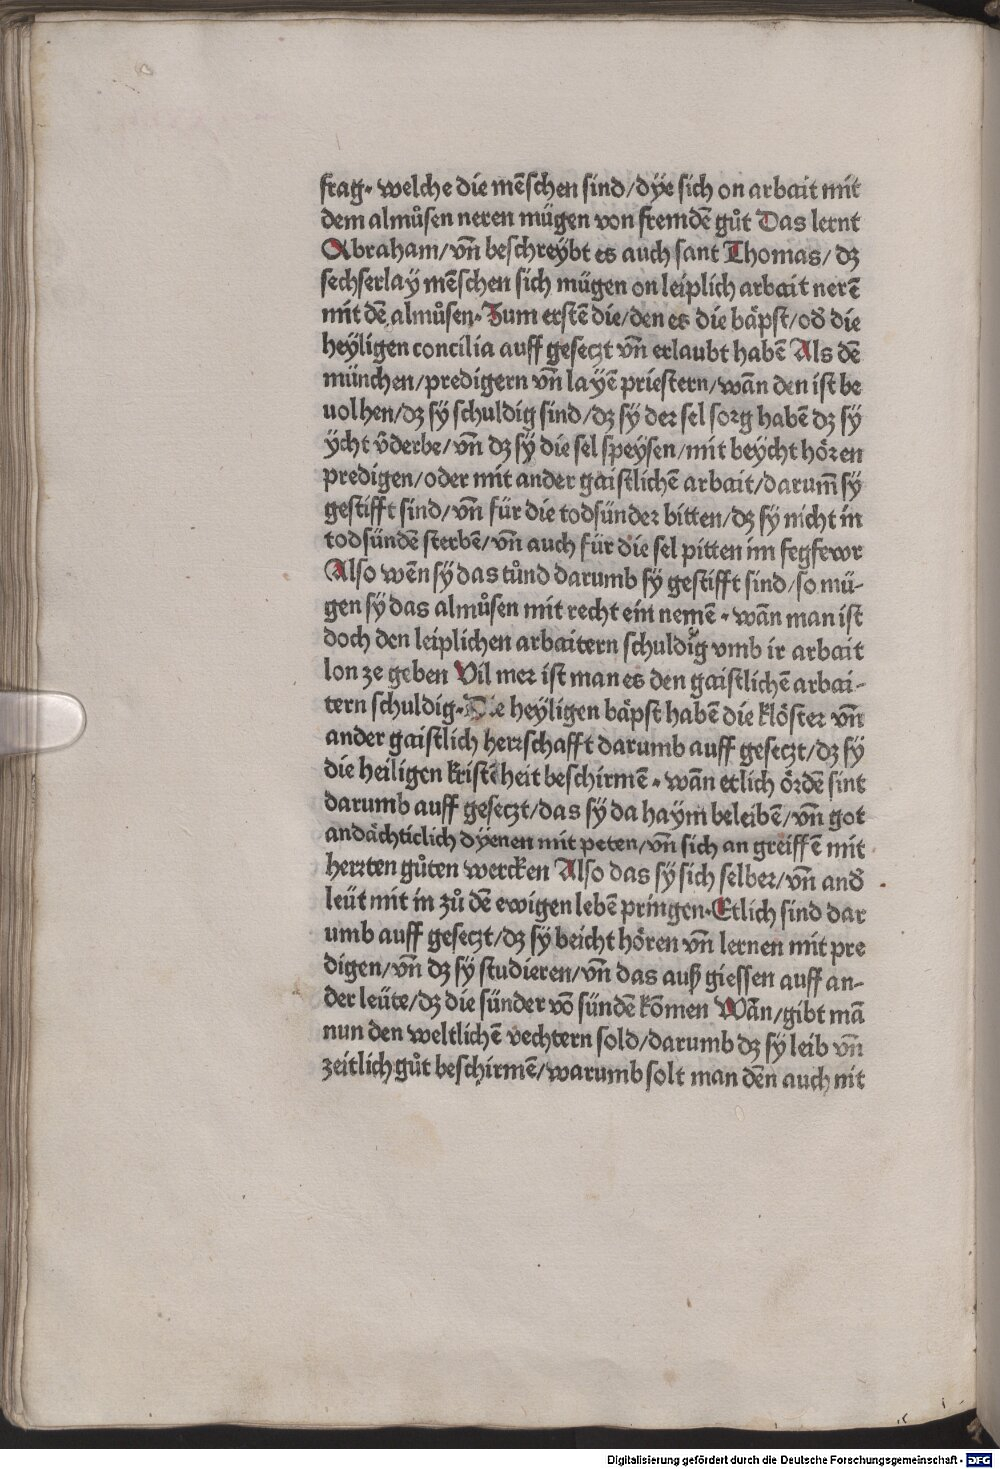 frag. welche die mēschen sind/dye sich on arbait mit
dem almůsen neren mügen von fremdē gůt Das lernt
Abraham/vn̄ beschreybt es auch sant Thomas/dʒ
sechserlay mēschen sich mügen on leiplich arbait nerē
mit dē almůsen. Zum erstē die/den es die bäpst/od̄ die
heyligen concilia auff geseczt vn̄ erlaubt habē Als dē
münchen/predigern vn̄ layē priestern/wān den ist be
uolhen/dʒ sy schuldig sind/dʒ sy der sel sorg habē dʒ sy
ycht v̄derbe/vn̄ dʒ sy die sel speysen/mit beycht hören
predigen/oder mit ander gaistlichē arbait/darum̄ sy
gestifft sind/vn̄ für die todsünder bitten/dʒ sy nicht in
todsündē sterbē/vn̄ auch für die sel pitten im fegfewr
Also wēn sy das tůnd darumb sy gestifft sind/so mü-
gen sy das almůsen mit recht ein nemē. wān man ist
doch den leiplichen arbaitern schuldig vmb ir arbait
lon ze geben Vil mer ist man es den gaistlichē arbai-
tern schuldig. Die heyligen bäpst habē die klöster vn̄
ander gaistlich herrschafft darumb auff geseczt/dʒ sy
die heiligen kristēheit beschirmē. wān etlich ördē sint
darumb auff geseczt/das sy da haym beleibē/vn̄ got
andächticlich dyenen mit peten/vn̄ sich an greiffē mit
herrten gůten wercken Also das sy sich selber/vn̄ and̄
leüt mit in zů dē ewigen lebē pringen. Etlich sind dar
umb auff geseczt/dʒ sy beicht hören vn̄ lernen mit pre
digen/vn̄ dʒ sy studieren/vn̄ das auß giessen auff an-
der leüte/dʒ die sünder vō sündē kōmen Wān/gibt mā
nun den weltlichē vechtern sold/darumb dʒ sy leib vn̄
zeitlich gůt beschirmē/warumb solt man dēn auch nit
Digitalisierung gefördert durch die Deutsche Forschungsgemeinschaft - DFG